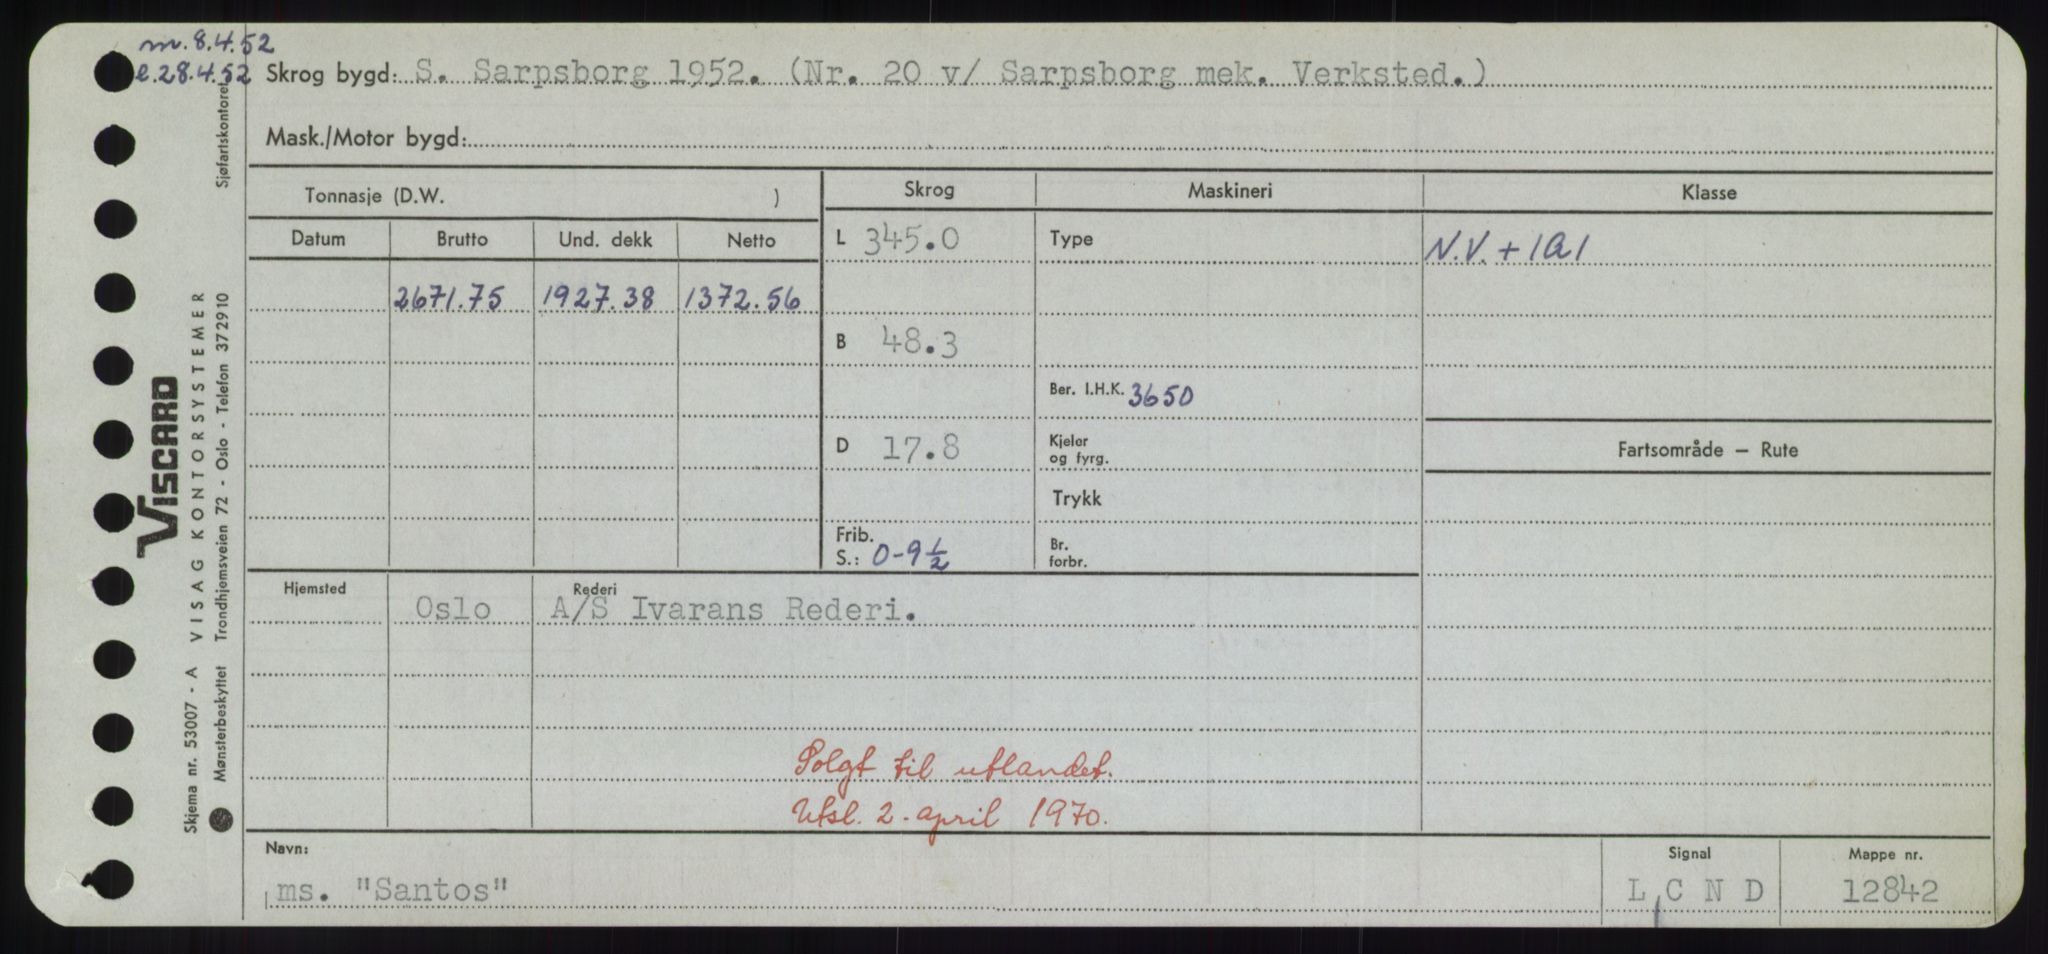 m. 8.4.52
l. 28.4.52
Skrog bygd: S. Sarpsborg 1952. (Nr. 20 v/ Sarpsborg mek. Verksted.)
Mask./Motor bygd:
Tonnasje (D.W. )
Skrog Maskineri Klasse
Datum Brutto Und. dekk Netto
L 345.0 Type N.V. + 1A1
2671.75 1927.38 1372.56
B 48.3
Ber. I.H.K. 3650
D 17.8 Kjeler og fyrg. Fartsområde — Rute
Trykk
Frib. S.: 0-9½ Br. forbr.
Hjemsted Rederi
Oslo A/S Ivarans Rederi.
Solgt til utlandet.
Utsl. 2. april 1970.
Navn: Signal Mappe nr.
ms. "Santos" L C N D 12842
Skjema nr. 53007 - A VISAG KONTORSYSTEMER
VISCARD
Mønsterbeskyttet Trondhjemsveien 72 - Oslo - Telefon 372910 Sjøfartskontoret